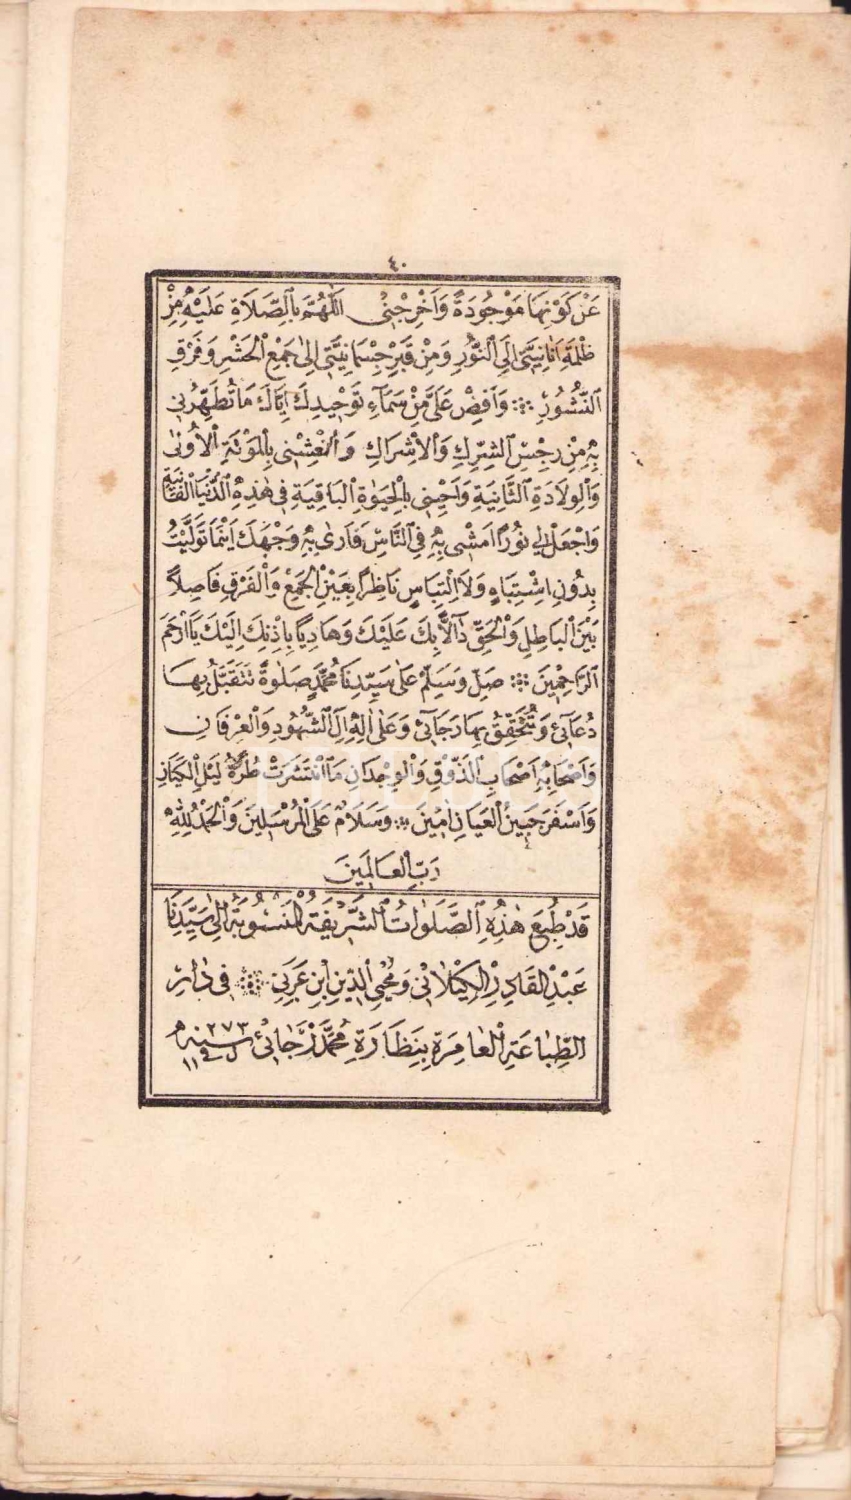 ٤٠
عَنْ كَوْنِهَا مَوْجُودَةً وَاَخْرِجْنِى اَللّٰهُمَّ بِالصَّلَاةِ عَلَيْهِ مِنْ
ظُلْمَةِ اَنَانِيَّتِى اِلَى النُّورِ وَمِنْ قَبْرِ جِسْمَانِيَّتِى اِلٰى جَمْعِ الْحَشْرِ وَفَرْقِ
النُّشُورِ وَاَفِضْ عَلَىَّ مِنْ سَمَآءِ تَوْحِيدِكَ اِيَّاكَ مَا تُطَهِّرُنِى
بِهِ مِنْ رِجْسِ الشِّرْكِ وَالْاِشْرَاكِ وَانْعِشْنِى بِالْمَوْتَةِ الْاُولٰى
وَالْوِلَادَةِ الثَّانِيَةِ وَاَحْيِنِى بِالْحَيٰوةِ الْبَاقِيَةِ فِى هٰذِهِ الدُّنْيَا الْفَانِيَةِ
وَاجْعَلْ لِى نُورًا اَمْشِى بِهِ فِى النَّاسِ فَاَرٰى بِهِ وَجْهَكَ اَيْنَمَا تَوَلَّيْتُ
بِدُونِ اشْتِبَاهٍ وَلَا الْتِبَاسٍ نَاظِرًا بِعَيْنِ الْجَمْعِ وَالْفَرْقِ فَاصِلًا
بَيْنَ الْبَاطِلِ وَالْحَقِّ دَآلًّا بِكَ عَلَيْكَ وَهَادِيًا بِاِذْنِكَ اِلَيْكَ يَآ اَرْحَمَ
الرَّاحِمِينَ صَلِّ وَسَلِّمْ عَلٰى سَيِّدِنَا مُحَمَّدٍ صَلٰوةً تَتَقَبَّلُ بِهَا
دُعَآئِى وَتُحَقِّقُ بِهَا رَجَآئِى وَعَلٰى اٰلِهِ اٰلِ الشُّهُودِ وَالْعِرْفَانِ
وَاَصْحَابِهِ اَصْحَابِ الذَّوْقِ وَالْوِجْدَانِ مَا انْتَشَرَتْ طُرَّةُ لَيْلِ الْكِيَانِ
وَاَسْفَرَ جَبِينُ الْعَيَانِ اٰمِينَ وَسَلَامٌ عَلَى الْمُرْسَلِينَ وَالْحَمْدُ لِلّٰهِ
رَبِّ الْعَالَمِينَ
قَدْ طُبِعَ هٰذِهِ الصَّلَوٰاتُ الشَّرِيفَةُ الْمَنْسُوبَةُ اِلٰى سَيِّدِنَا
عَبْدِ الْقَادِرِ الْكِيْلَانِى وَمُحْيِى الدِّينِ ابْنِ عَرَبِى فِى دَارِ
الطِّبَاعَةِ الْعَامِرَةِ بِنَظَارَةِ مُحَمَّدْ رَجَائِى سنه ٢٧٣